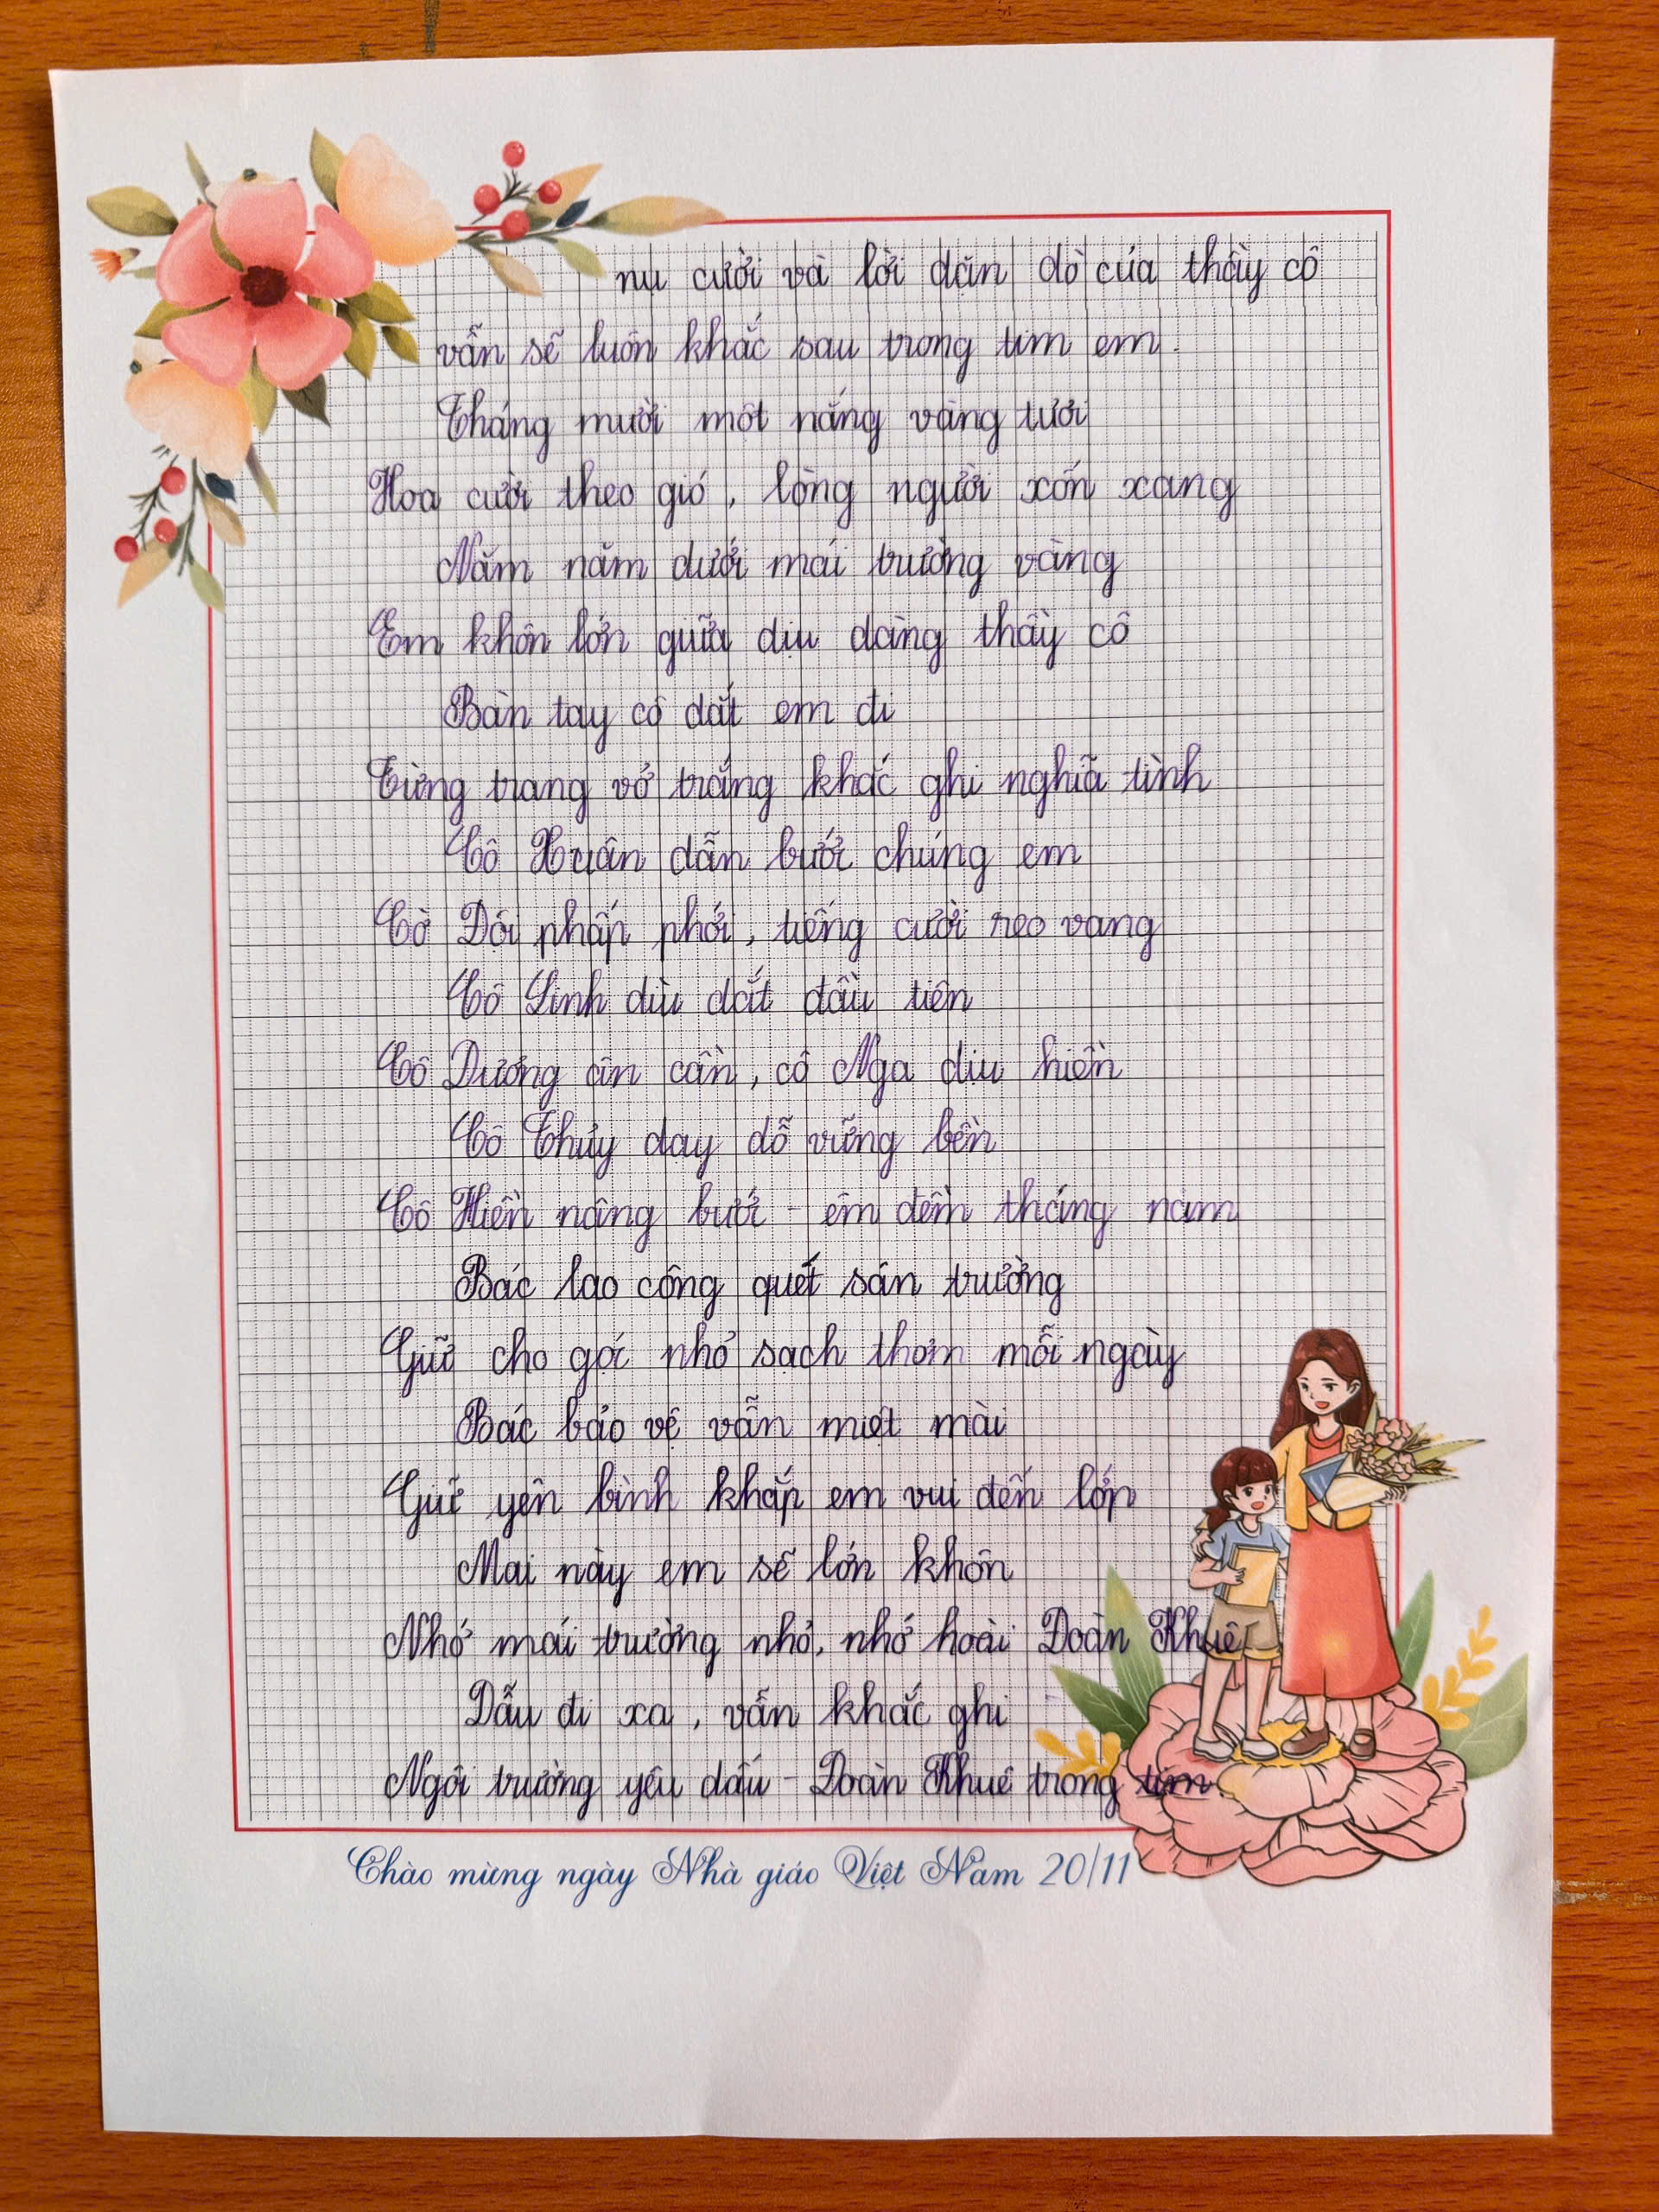 nụ cười và lời dặn dò của thầy cô
vẫn sẽ luôn khắc sau trong tim em.
Tháng mười một nắng vàng tươi
Hoa cười theo gió, lòng người xốn xang
Năm năm dưới mái trường vàng
Em khôn lớn giữa dịu dàng thầy cô
Bàn tay cô dắt em đi
Từng trang vở trắng khắc ghi nghĩa tình
Cô Xuân dẫn bước chúng em
Cờ Đội phấp phới, tiếng cười reo vang
Cô Linh dìu dắt đầu tiên
Cô Dương ân cần, cô Nga dịu hiền
Cô Thủy dạy dỗ vững bền
Cô Hiền nâng bước - êm đềm tháng năm
Bác lao công quét sân trường
Giữ cho góc nhỏ sạch thơm mỗi ngày
Bác bảo vệ vẫn miệt mài
Giữ yên bình khắp em vui đến lớp
Mai này em sẽ lớn khôn
Nhớ mái trường nhỏ, nhớ hoài Đoàn Khuê
Dẫu đi xa, vẫn khắc ghi
Ngôi trường yêu dấu - Đoàn Khuê trong tim
Chào mừng ngày Nhà giáo Việt Nam 20/11